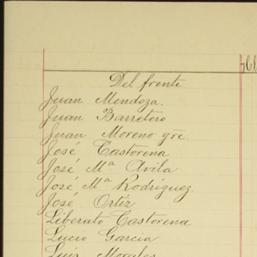 Del frente
Juan Mendoza.
Juan Barretero
Juan Moreno gre.
José Castorena
José Mª Avila
José Mª Rodriguez
José Ortiz
Liberato Castorena
Lucio Garcia
Luis Morales